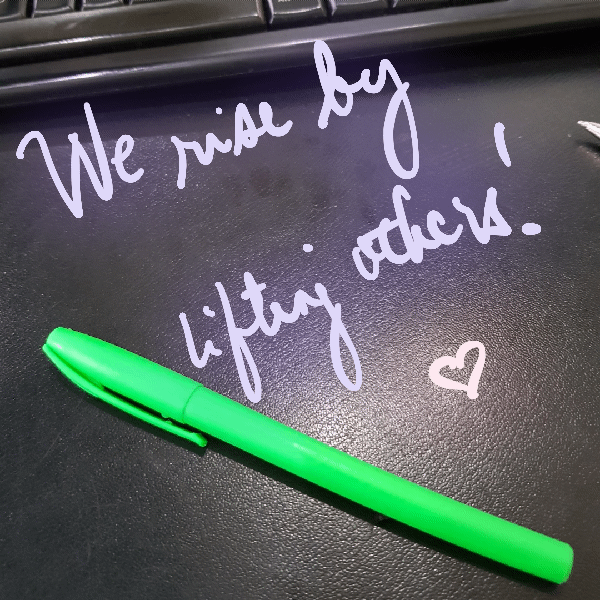 We rise by
lifting others!